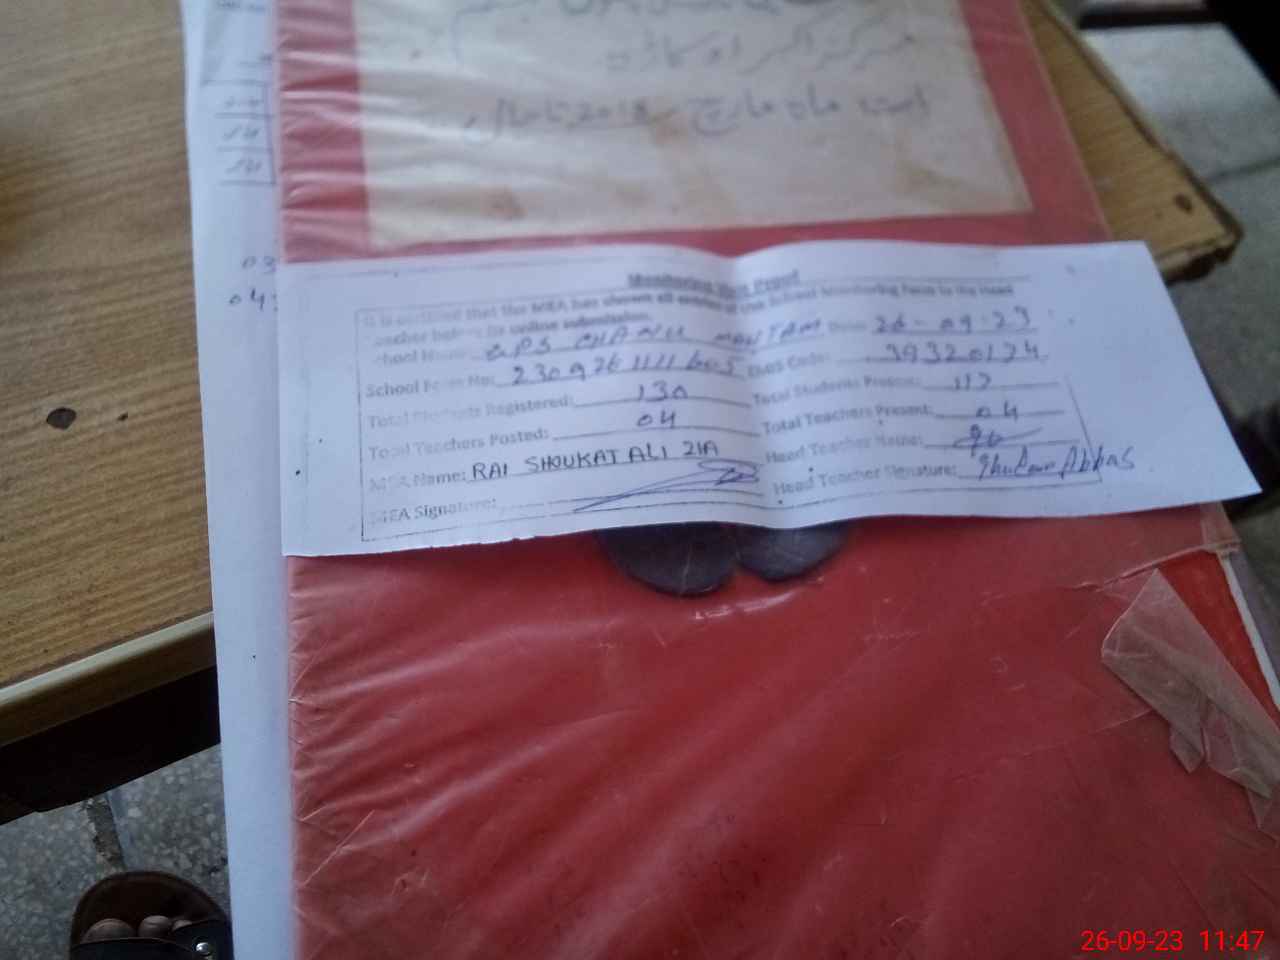 مرکز اکبر اوکاڑہ
ماہ مارچ 2018 تا حال
03
04
Monitoring Visit Proof
It is certified that the MEA has shown all entries of the School Monitoring Form to the Head
Teacher before its online submission.
School Name: GPS CHANU MONTAM Date: 26-09-23
School Form No: 230926111 EMIS Code: 39320124
Total Students Registered: 130 Total Students Present: 117
Total Teachers Posted: 04 Total Teachers Present: 04
MEA Name: RAI SHOUKAT ALI ZIA Head Teacher Name:
MEA Signature: Head Teacher Signature: Ghulam Abbas
26-09-23 11:47